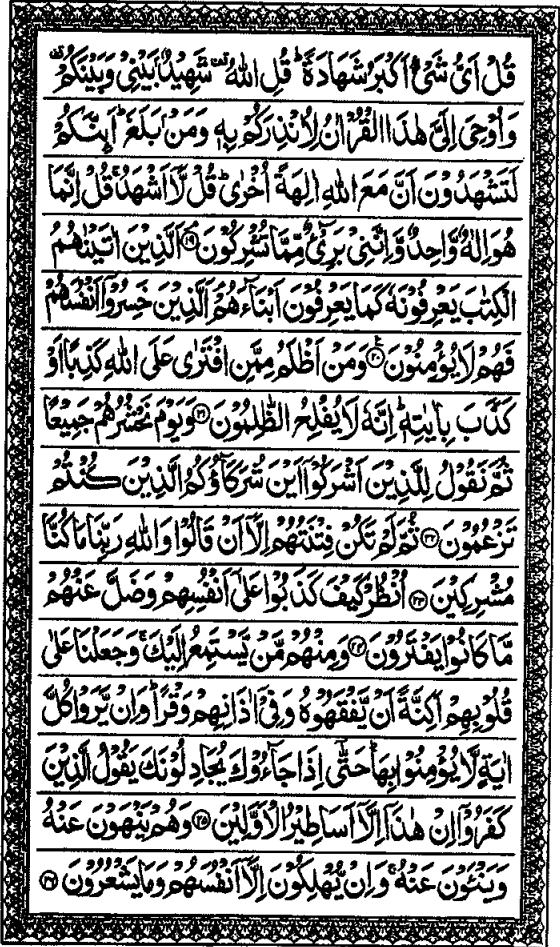 قُلْ اَىُّ شَىْءٍ اَكْبَرُ شَهَادَةً ؕ قُلِ اللّٰهُ ۟ شَهِيْدٌۢ بَيْنِىْ وَبَيْنَكُمْ ۟
وَاُوْحِىَ اِلَىَّ هٰذَا الْقُرْاٰنُ لِاُنْذِرَكُمْ بِهٖ وَمَنْۢ بَلَغَ ؕ اَئِنَّكُمْ
لَتَشْهَدُوْنَ اَنَّ مَعَ اللّٰهِ اٰلِهَةً اُخْرٰى ؕ قُلْ لَّاۤ اَشْهَدُ ۚ قُلْ اِنَّمَا
هُوَ اِلٰهٌ وَّاحِدٌ وَّاِنَّنِىْ بَرِىْٓءٌ مِّمَّا تُشْرِكُوْنَ ۘ ﴿۱۹﴾ اَلَّذِيْنَ اٰتَيْنٰهُمُ
الْكِتٰبَ يَعْرِفُوْنَهٗ كَمَا يَعْرِفُوْنَ اَبْنَآءَهُمْ ۘ اَلَّذِيْنَ خَسِرُوْۤا اَنْفُسَهُمْ
فَهُمْ لَا يُؤْمِنُوْنَ ﴿۲۰﴾ وَمَنْ اَظْلَمُ مِمَّنِ افْتَرٰى عَلَى اللّٰهِ كَذِبًا اَوْ
كَذَّبَ بِاٰيٰتِهٖ ؕ اِنَّهٗ لَا يُفْلِحُ الظّٰلِمُوْنَ ﴿۲۱﴾ وَيَوْمَ نَحْشُرُهُمْ جَمِيْعًا
ثُمَّ نَقُوْلُ لِلَّذِيْنَ اَشْرَكُوْۤا اَيْنَ شُرَكَآؤُكُمُ الَّذِيْنَ كُنْتُمْ
تَزْعُمُوْنَ ﴿۲۲﴾ ثُمَّ لَمْ تَكُنْ فِتْنَتُهُمْ اِلَّاۤ اَنْ قَالُوْا وَاللّٰهِ رَبِّنَا مَا كُنَّا
مُشْرِكِيْنَ ﴿۲۳﴾ اُنْظُرْ كَيْفَ كَذَبُوْا عَلٰٓى اَنْفُسِهِمْ وَضَلَّ عَنْهُمْ
مَّا كَانُوْا يَفْتَرُوْنَ ﴿۲۴﴾ وَمِنْهُمْ مَّنْ يَّسْتَمِعُ اِلَيْكَ ۚ وَجَعَلْنَا عَلٰى
قُلُوْبِهِمْ اَكِنَّةً اَنْ يَّفْقَهُوْهُ وَفِىْۤ اٰذَانِهِمْ وَقْرًا ؕ وَاِنْ يَّرَوْا كُلَّ
اٰيَةٍ لَّا يُؤْمِنُوْا بِهَا ؕ حَتّٰٓى اِذَا جَآءُوْكَ يُجَادِلُوْنَكَ يَقُوْلُ الَّذِيْنَ
كَفَرُوْۤا اِنْ هٰذَاۤ اِلَّاۤ اَسَاطِيْرُ الْاَوَّلِيْنَ ﴿۲۵﴾ وَهُمْ يَنْهَوْنَ عَنْهُ
وَيَنْـَٔوْنَ عَنْهُ ۚ وَاِنْ يُّهْلِكُوْنَ اِلَّاۤ اَنْفُسَهُمْ وَمَا يَشْعُرُوْنَ ﴿۲۶﴾